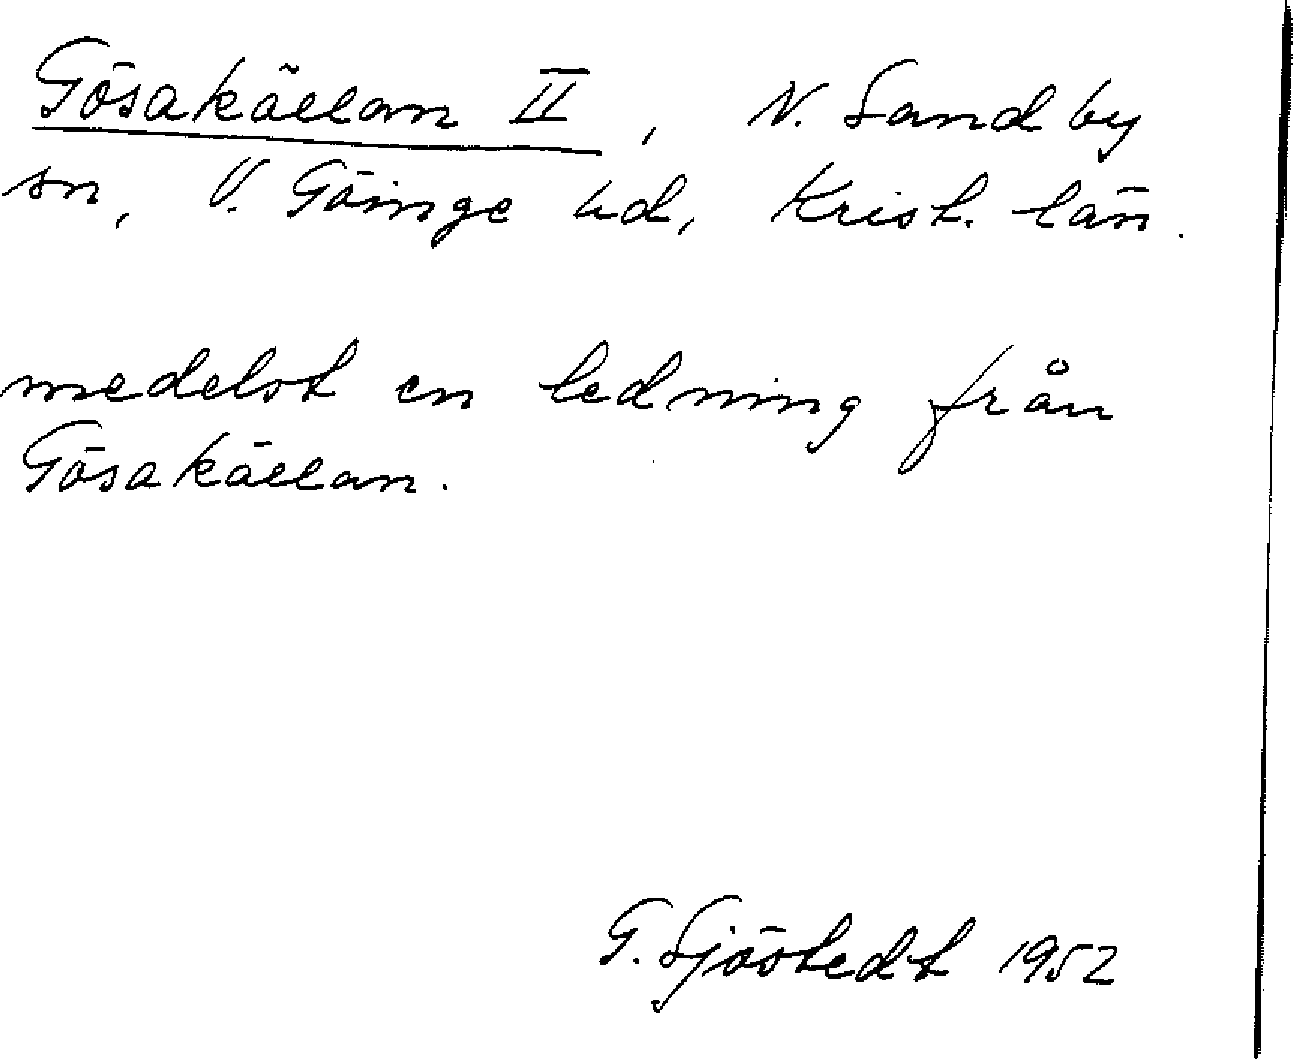 Gösakällan II, N. Sandby
sn, V. Göinge hd, Krist. län.
medelst en ledning från
Gösakällan.
G. Sjöstedt 1952